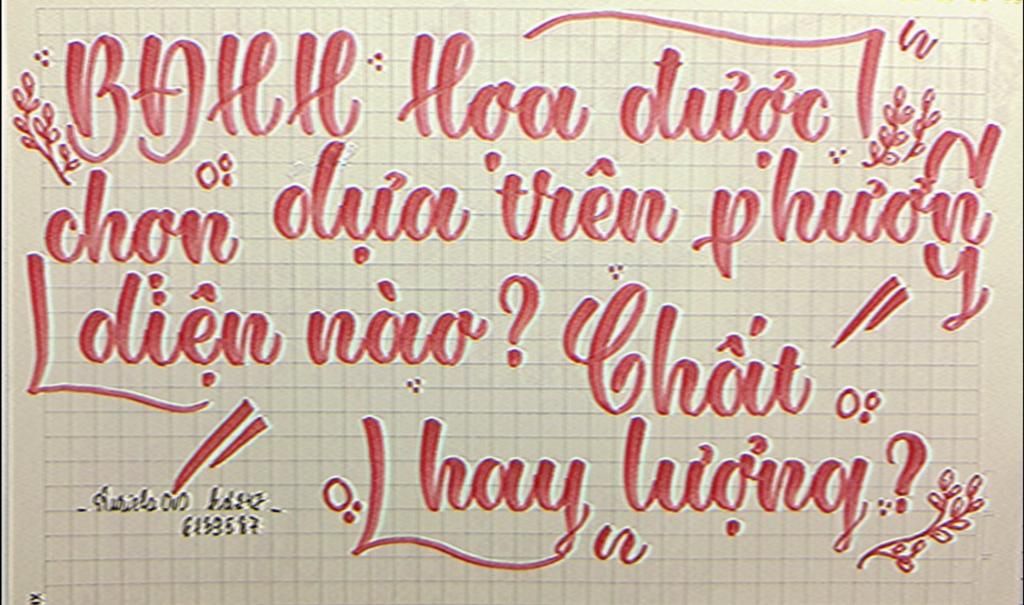 BĐHH Hoa được
chọn dựa trên phương
diện nào? Chất
hay lượng?
6199587